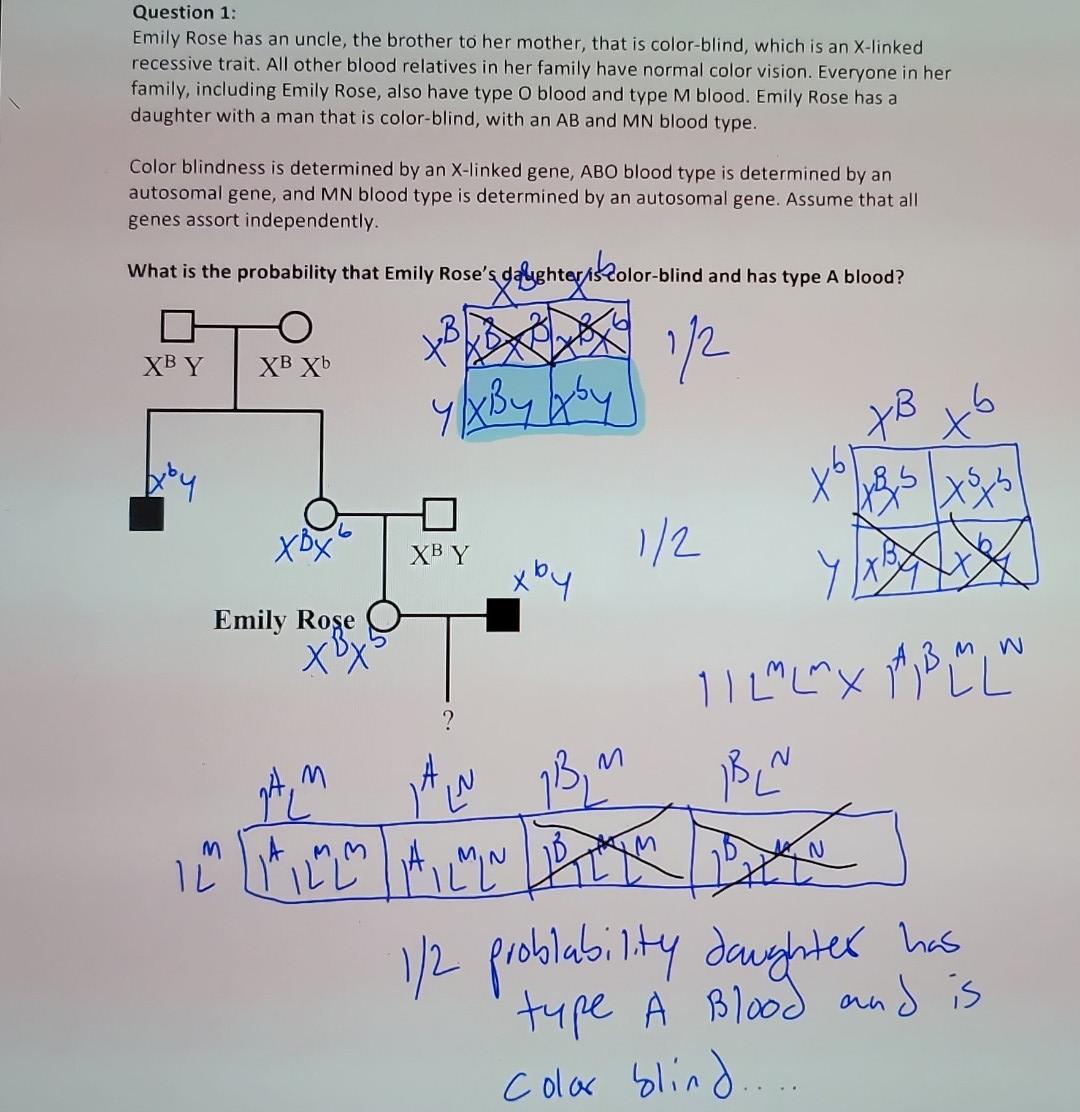 Question 1:
Emily Rose has an uncle, the brother to her mother, that is color-blind, which is an X-linked
recessive trait. All other blood relatives in her family have normal color vision. Everyone in her
family, including Emily Rose, also have type O blood and type M blood. Emily Rose has a
daughter with a man that is color-blind, with an AB and MN blood type.
Color blindness is determined by an X-linked gene, ABO blood type is determined by an
autosomal gene, and MN blood type is determined by an autosomal gene. Assume that all
genes assort independently.
What is the probability that Emily Rose's daughter is color-blind and has type A blood?
X^B X^b
X^B X^B X^B X^B X^b 1/2
Y X^B Y X^b Y
X^B Y X^B X^b
X^B X^b
X^b X^B X^b X^b X^b
Y X^B Y X^b Y
X^b Y
X^B X^b X^B Y 1/2
X^b Y
Emily Rose
X^B X^b
?
I I L^M L^M X I^A I^B L^M L^N
I^A L^M I^A L^N I^B L^M I^B L^N
I L^M I^A I L^M L^M I^A I L^M L^N I^B I L^M L^M I^B I L^M L^N
1/2 problability daughter has
type A Blood and is
Color blind....